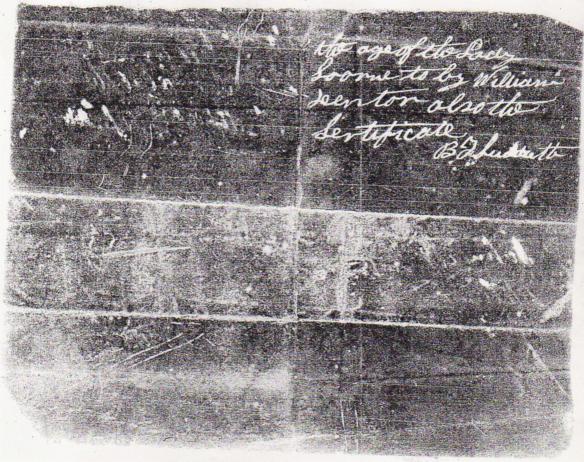 the age of the Lady
Sworne to by William
Senton also the
Sertificate
B